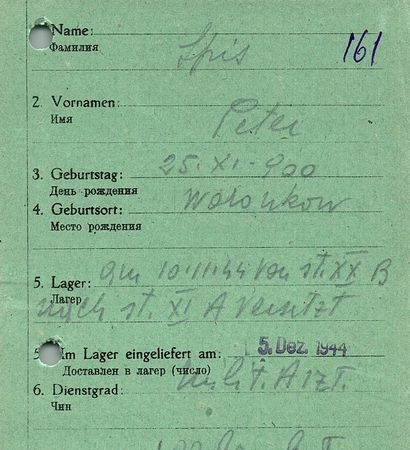 Name: Spis 161
Фамилия
2. Vornamen: Peter
Имя
3. Geburtstag: 25. XI - 900
День рождения
4. Geburtsort: Woloukow
Место рождения
5. Lager: am 10.11.44 von St. XX B
Лагер nach St. XI A versetzt
Im Lager eingeliefert am: 5. Dez. 1944
Доставлен в лагер (число)
6. Dienstgrad: Arzt.
Чин